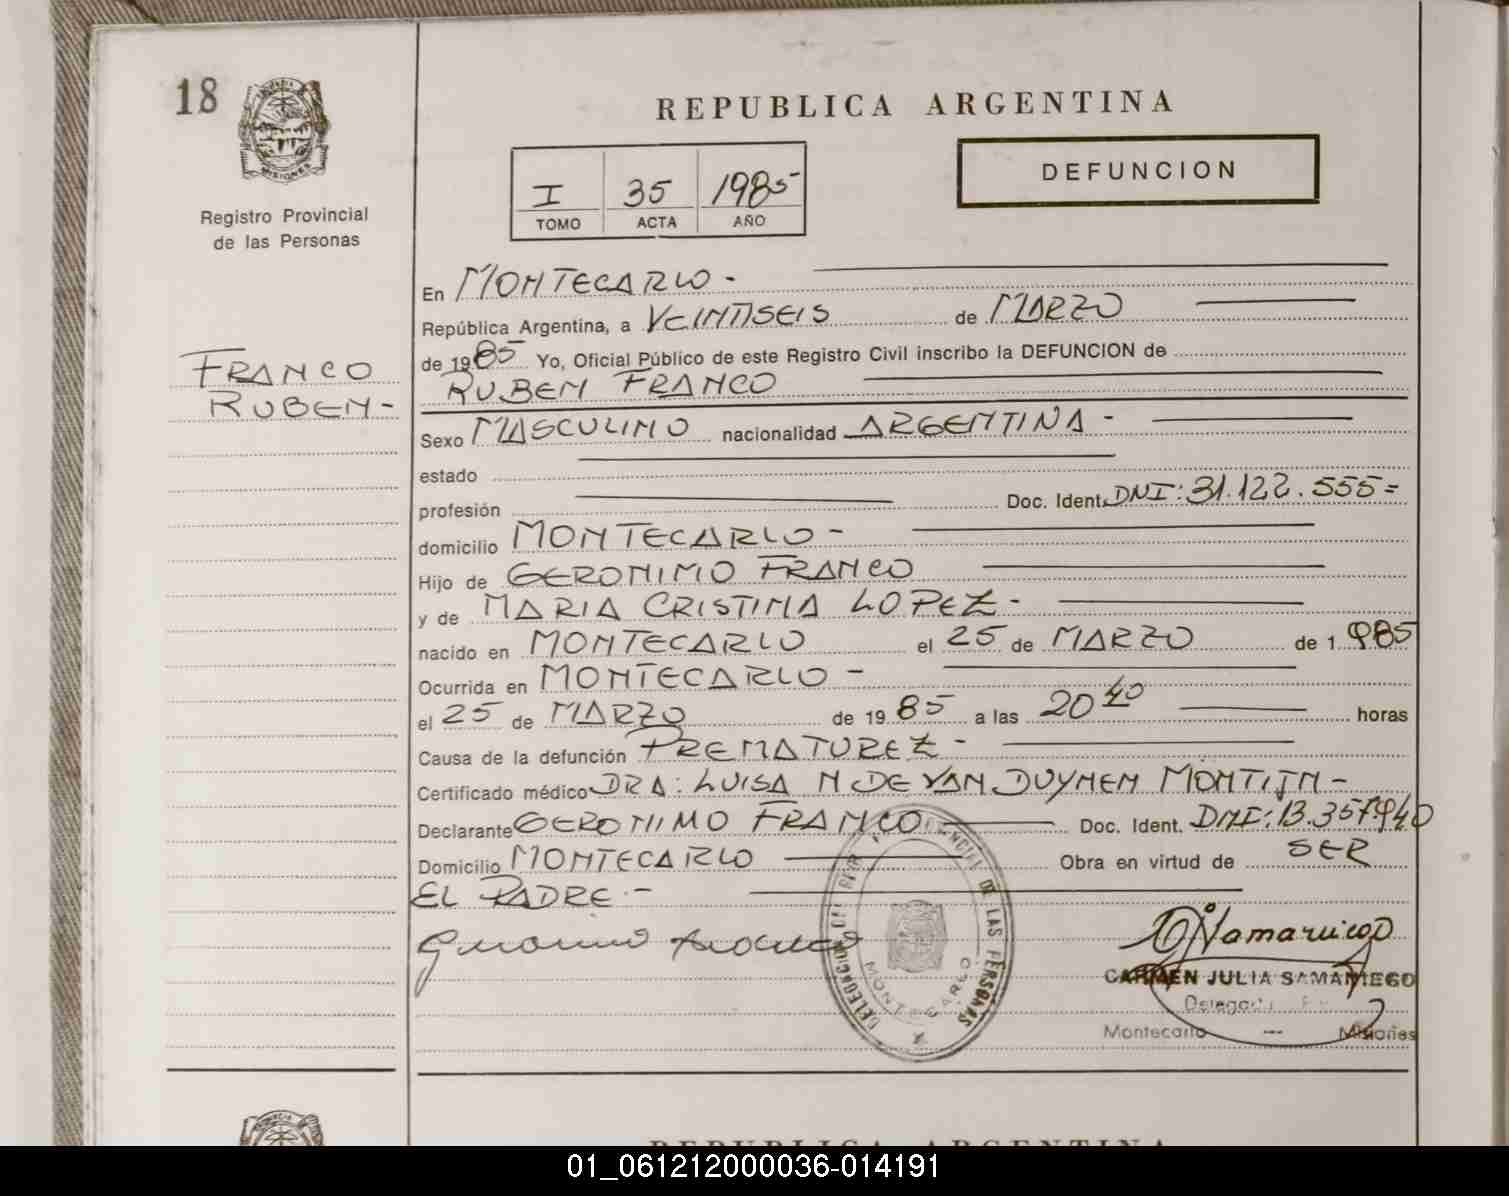 18
PROVINCIA DE
MISIONES
Registro Provincial
de las Personas
FRANCO
RUBEN-
REPUBLICA ARGENTINA
I 35 1985
TOMO ACTA AÑO
DEFUNCION
En MONTECARLO -
República Argentina, a VEINTISEIS de MARZO
de 1985 Yo, Oficial Público de este Registro Civil inscribo la DEFUNCION de
RUBEN FRANCO
Sexo MASCULINO nacionalidad ARGENTINA -
estado
profesión Doc. Ident. DNI: 31.122.555=
domicilio MONTECARLO -
Hijo de GERONIMO FRANCO
y de MARIA CRISTINA LOPEZ -
nacido en MONTECARLO el 25 de MARZO de 1.985
Ocurrida en MONTECARLO -
el 25 de MARZO de 1985 a las 20 40 horas
Causa de la defunción PREMATUREZ -
Certificado médico DRA: LUISA N DE VAN DUYNEN MONTIJN -
Declarante GERONIMO FRANCO Doc. Ident. DNI: 13.357.940
Domicilio MONTECARLO Obra en virtud de SER
EL PADRE -
Geronimo Franco
DELEGACION DEL REG. PROVINCIAL DE LAS PERSONAS
MONTECARLO
CARMEN JULIA SAMANIEGO
Delegada
Montecarlo --- Misiones
REPUBLICA ARGENTINA
01_061212000036-014191